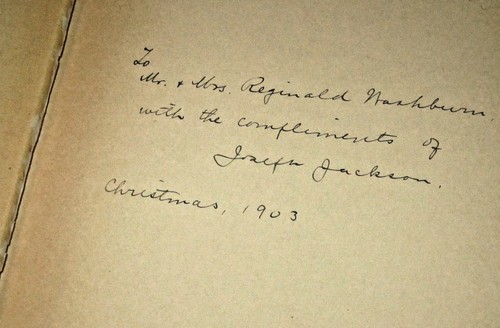 To
Mr. & Mrs. Reginald Washburn,
with the compliments of
Joseph Jackson.
Christmas, 1903